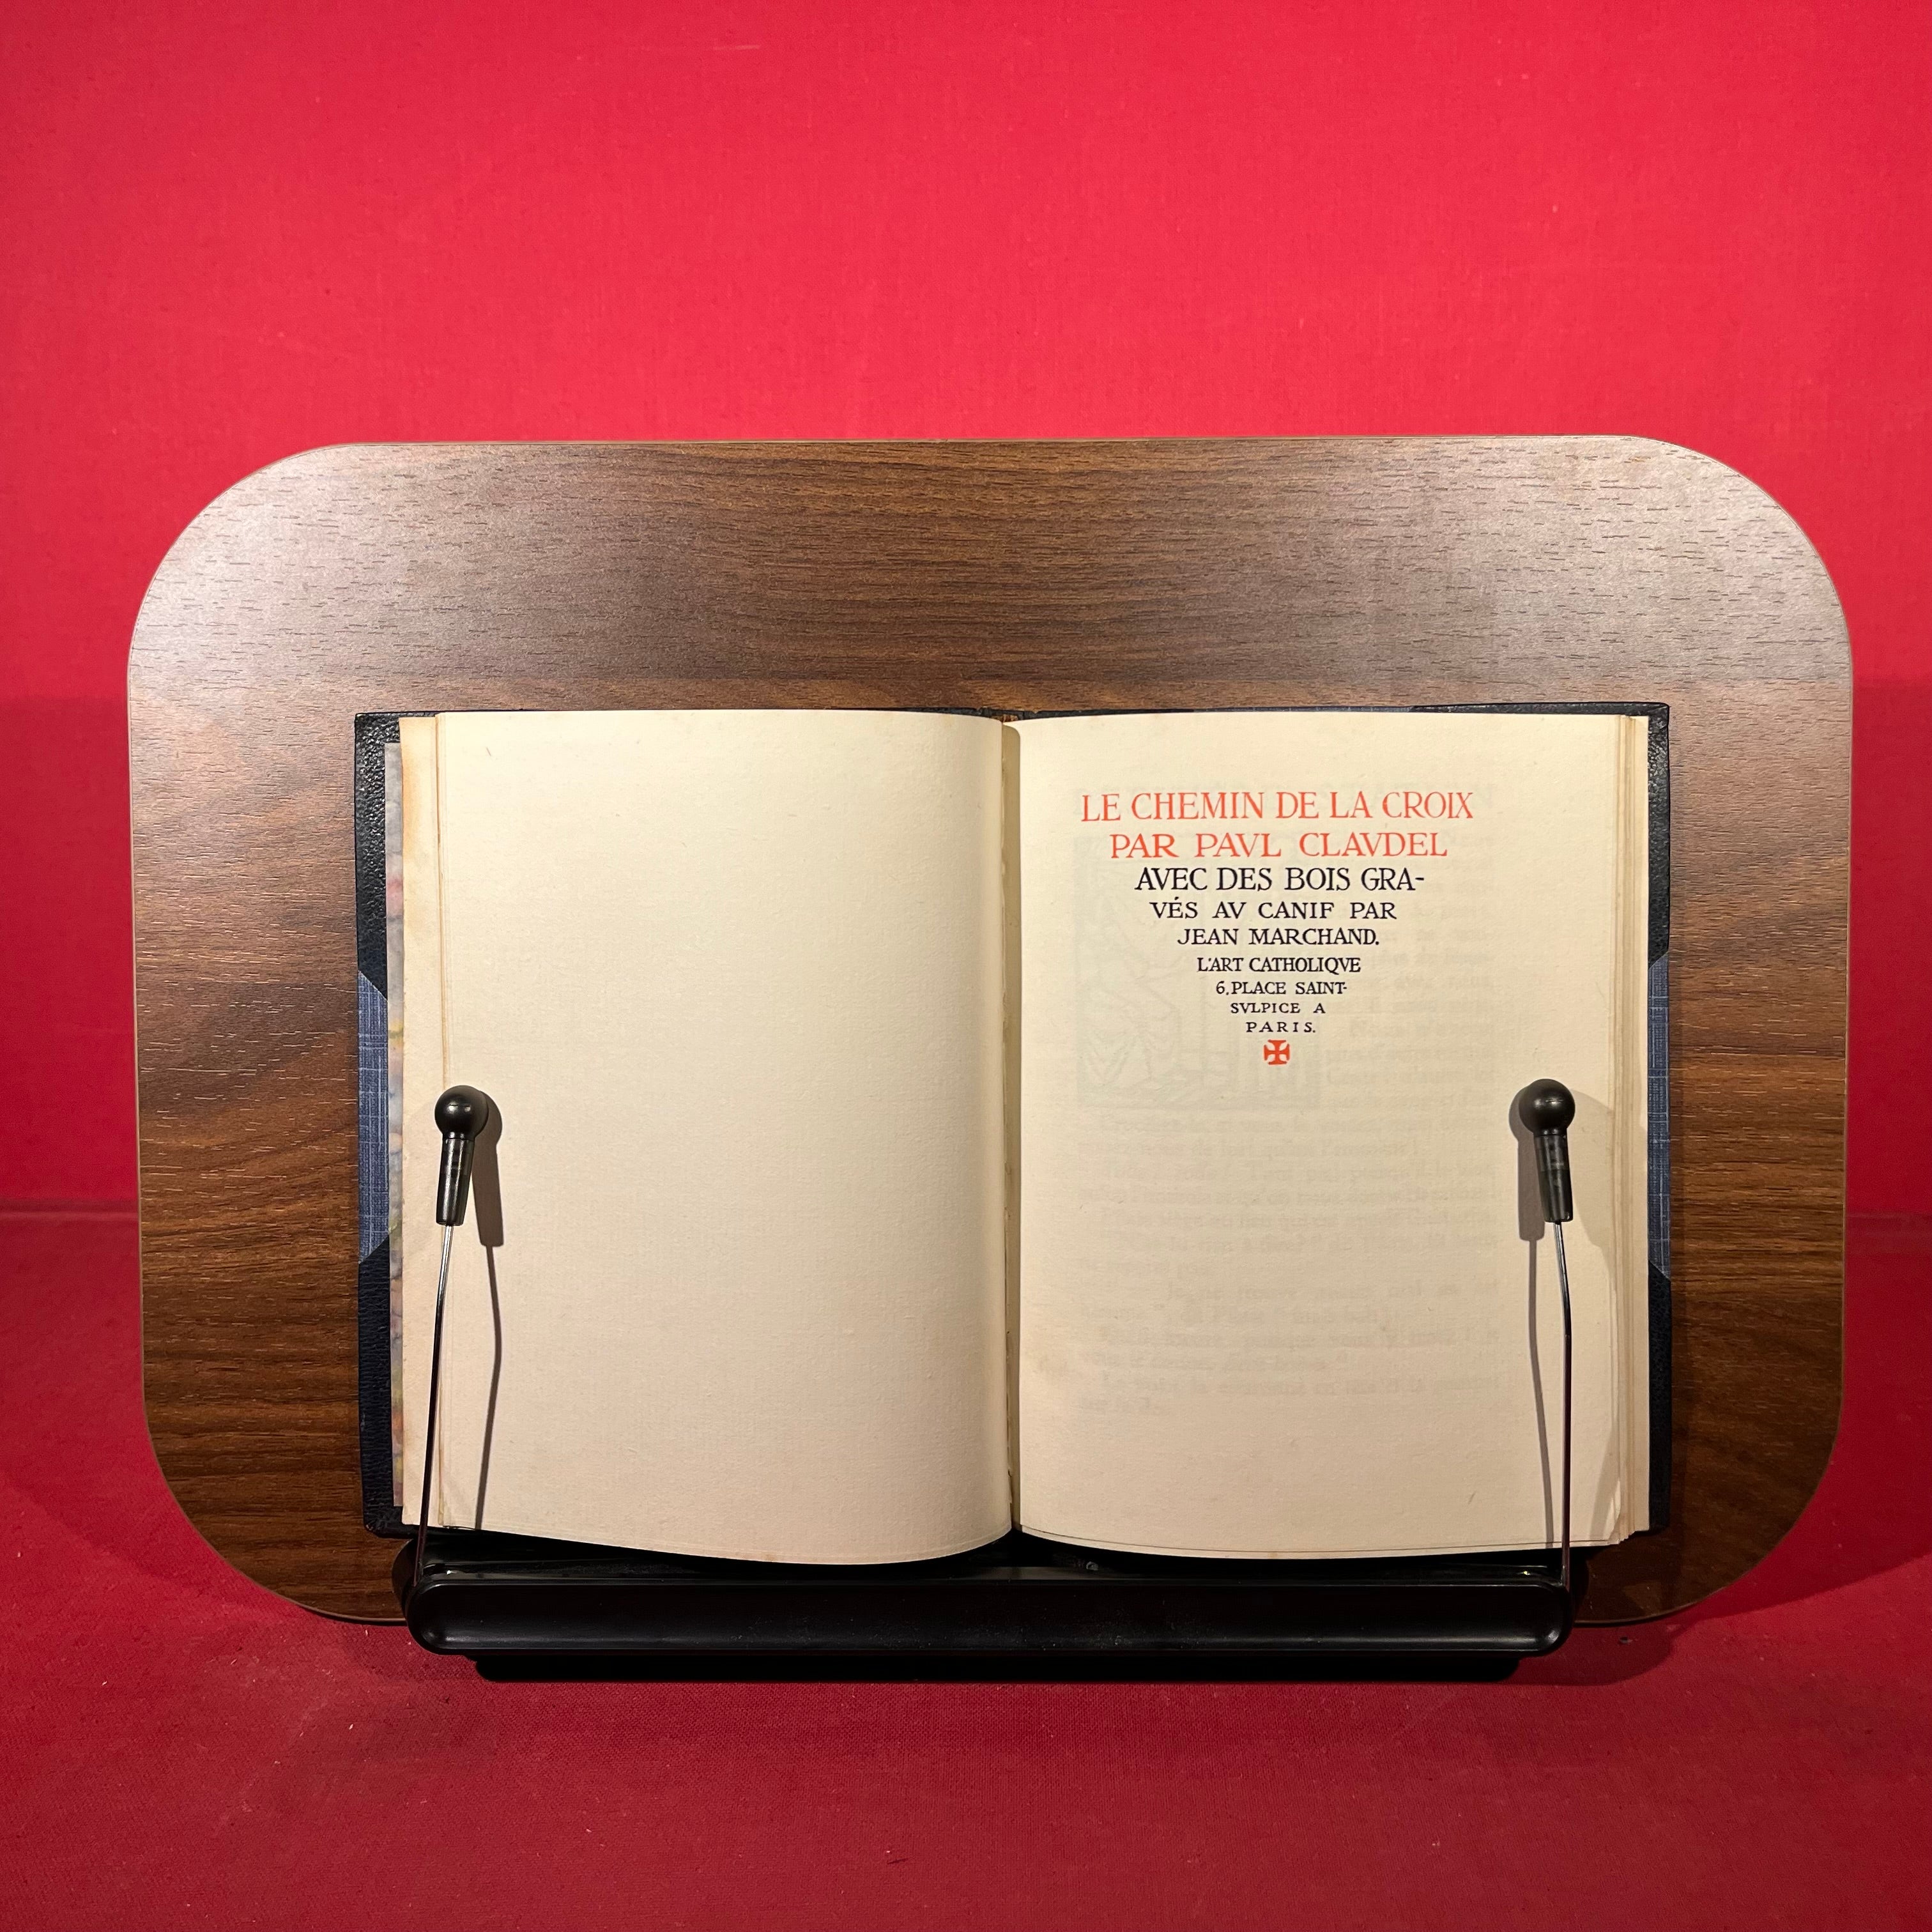 LE CHEMIN DE LA CROIX
PAR PAVL CLAVDEL
AVEC DES BOIS GRA-
VÉS AV CANIF PAR
JEAN MARCHAND.
L'ART CATHOLIQVE
6, PLACE SAINT-
SVLPICE A
PARIS.